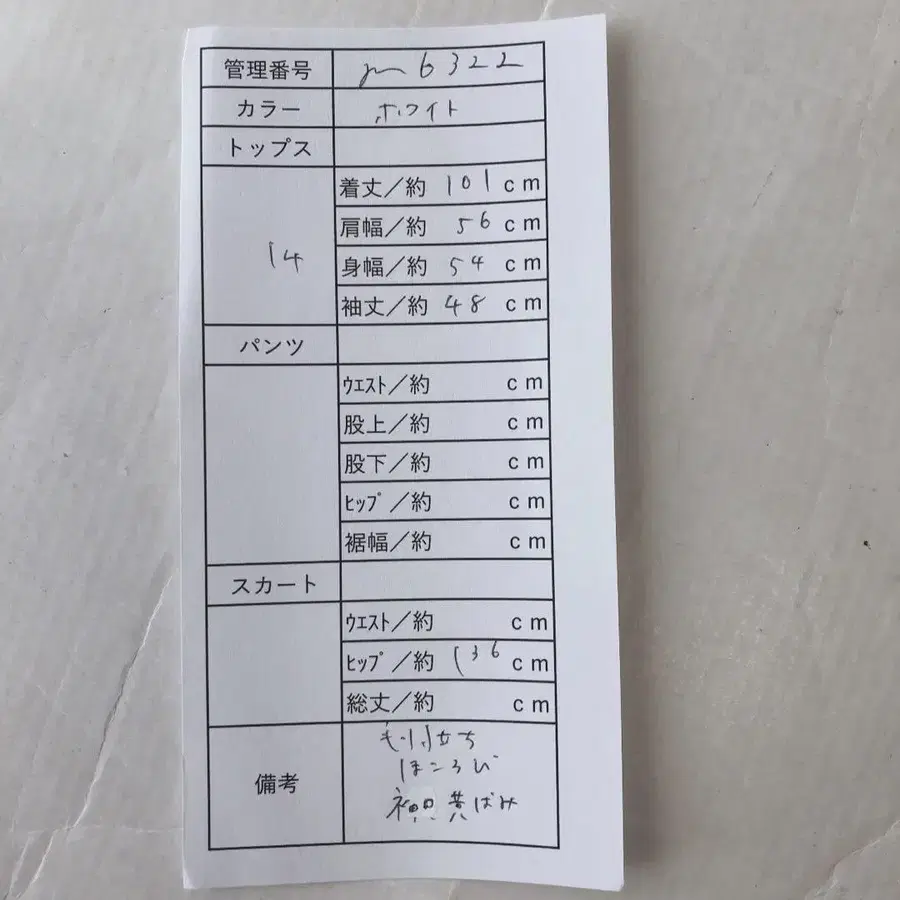 管理番号 m6322
カラー ホワイト
トップス
14
着丈／約 101 cm
肩幅／約 56 cm
身幅／約 54 cm
袖丈／約 48 cm
パンツ
ウエスト／約 cm
股上／約 cm
股下／約 cm
ヒップ／約 cm
裾幅／約 cm
スカート
ウエスト／約 cm
ヒップ／約 136 cm
総丈／約 cm
備考
立ち
ほころび
袖口黄ばみ